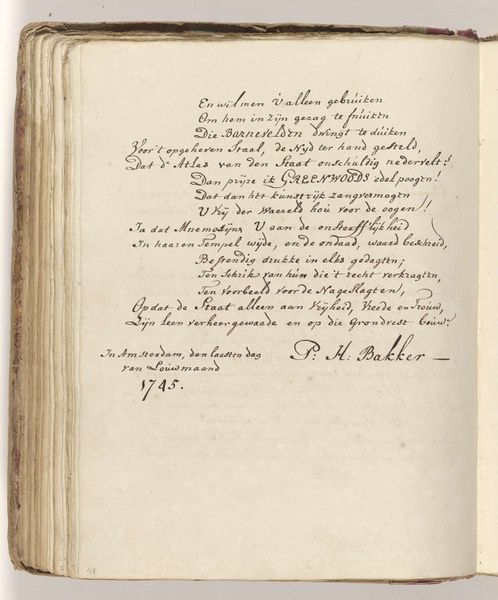 En wil men U alleen gebruiken
Om hem in zijn gezag te fnuiken
Die BARNEVELDEN dwingt te duiken
Voor 't opgeheven Staal, de Nyd ter hand gesteld,
Dat de Atlas van den Staat onschuldig nedervelt!
Dan pryze ik GREENWOODS edel poogen!
Dat dan hèt kunstrijk zangvermogen
U Vrij der Waereld hou voor de oogen!
Ja dat Mnemosijne U aan de onsterfflijkheid
In haaren Tempel wijde, en de ondaad, waard beschreid,
Bestendig drukke in elks gedagten;
Ten Schrik van hun die 't recht verkragten,
Ten Voorbeeld voor de Nageslagten,
Opdat de Staat alleen aan Vrijheid, Vrede en Trouw,
Zijn leen verheergewaade en op die Grondvest bouw.
In Amsterdam, den laesten dag
van Louwmaand
1745.
P: H: Bakker
48